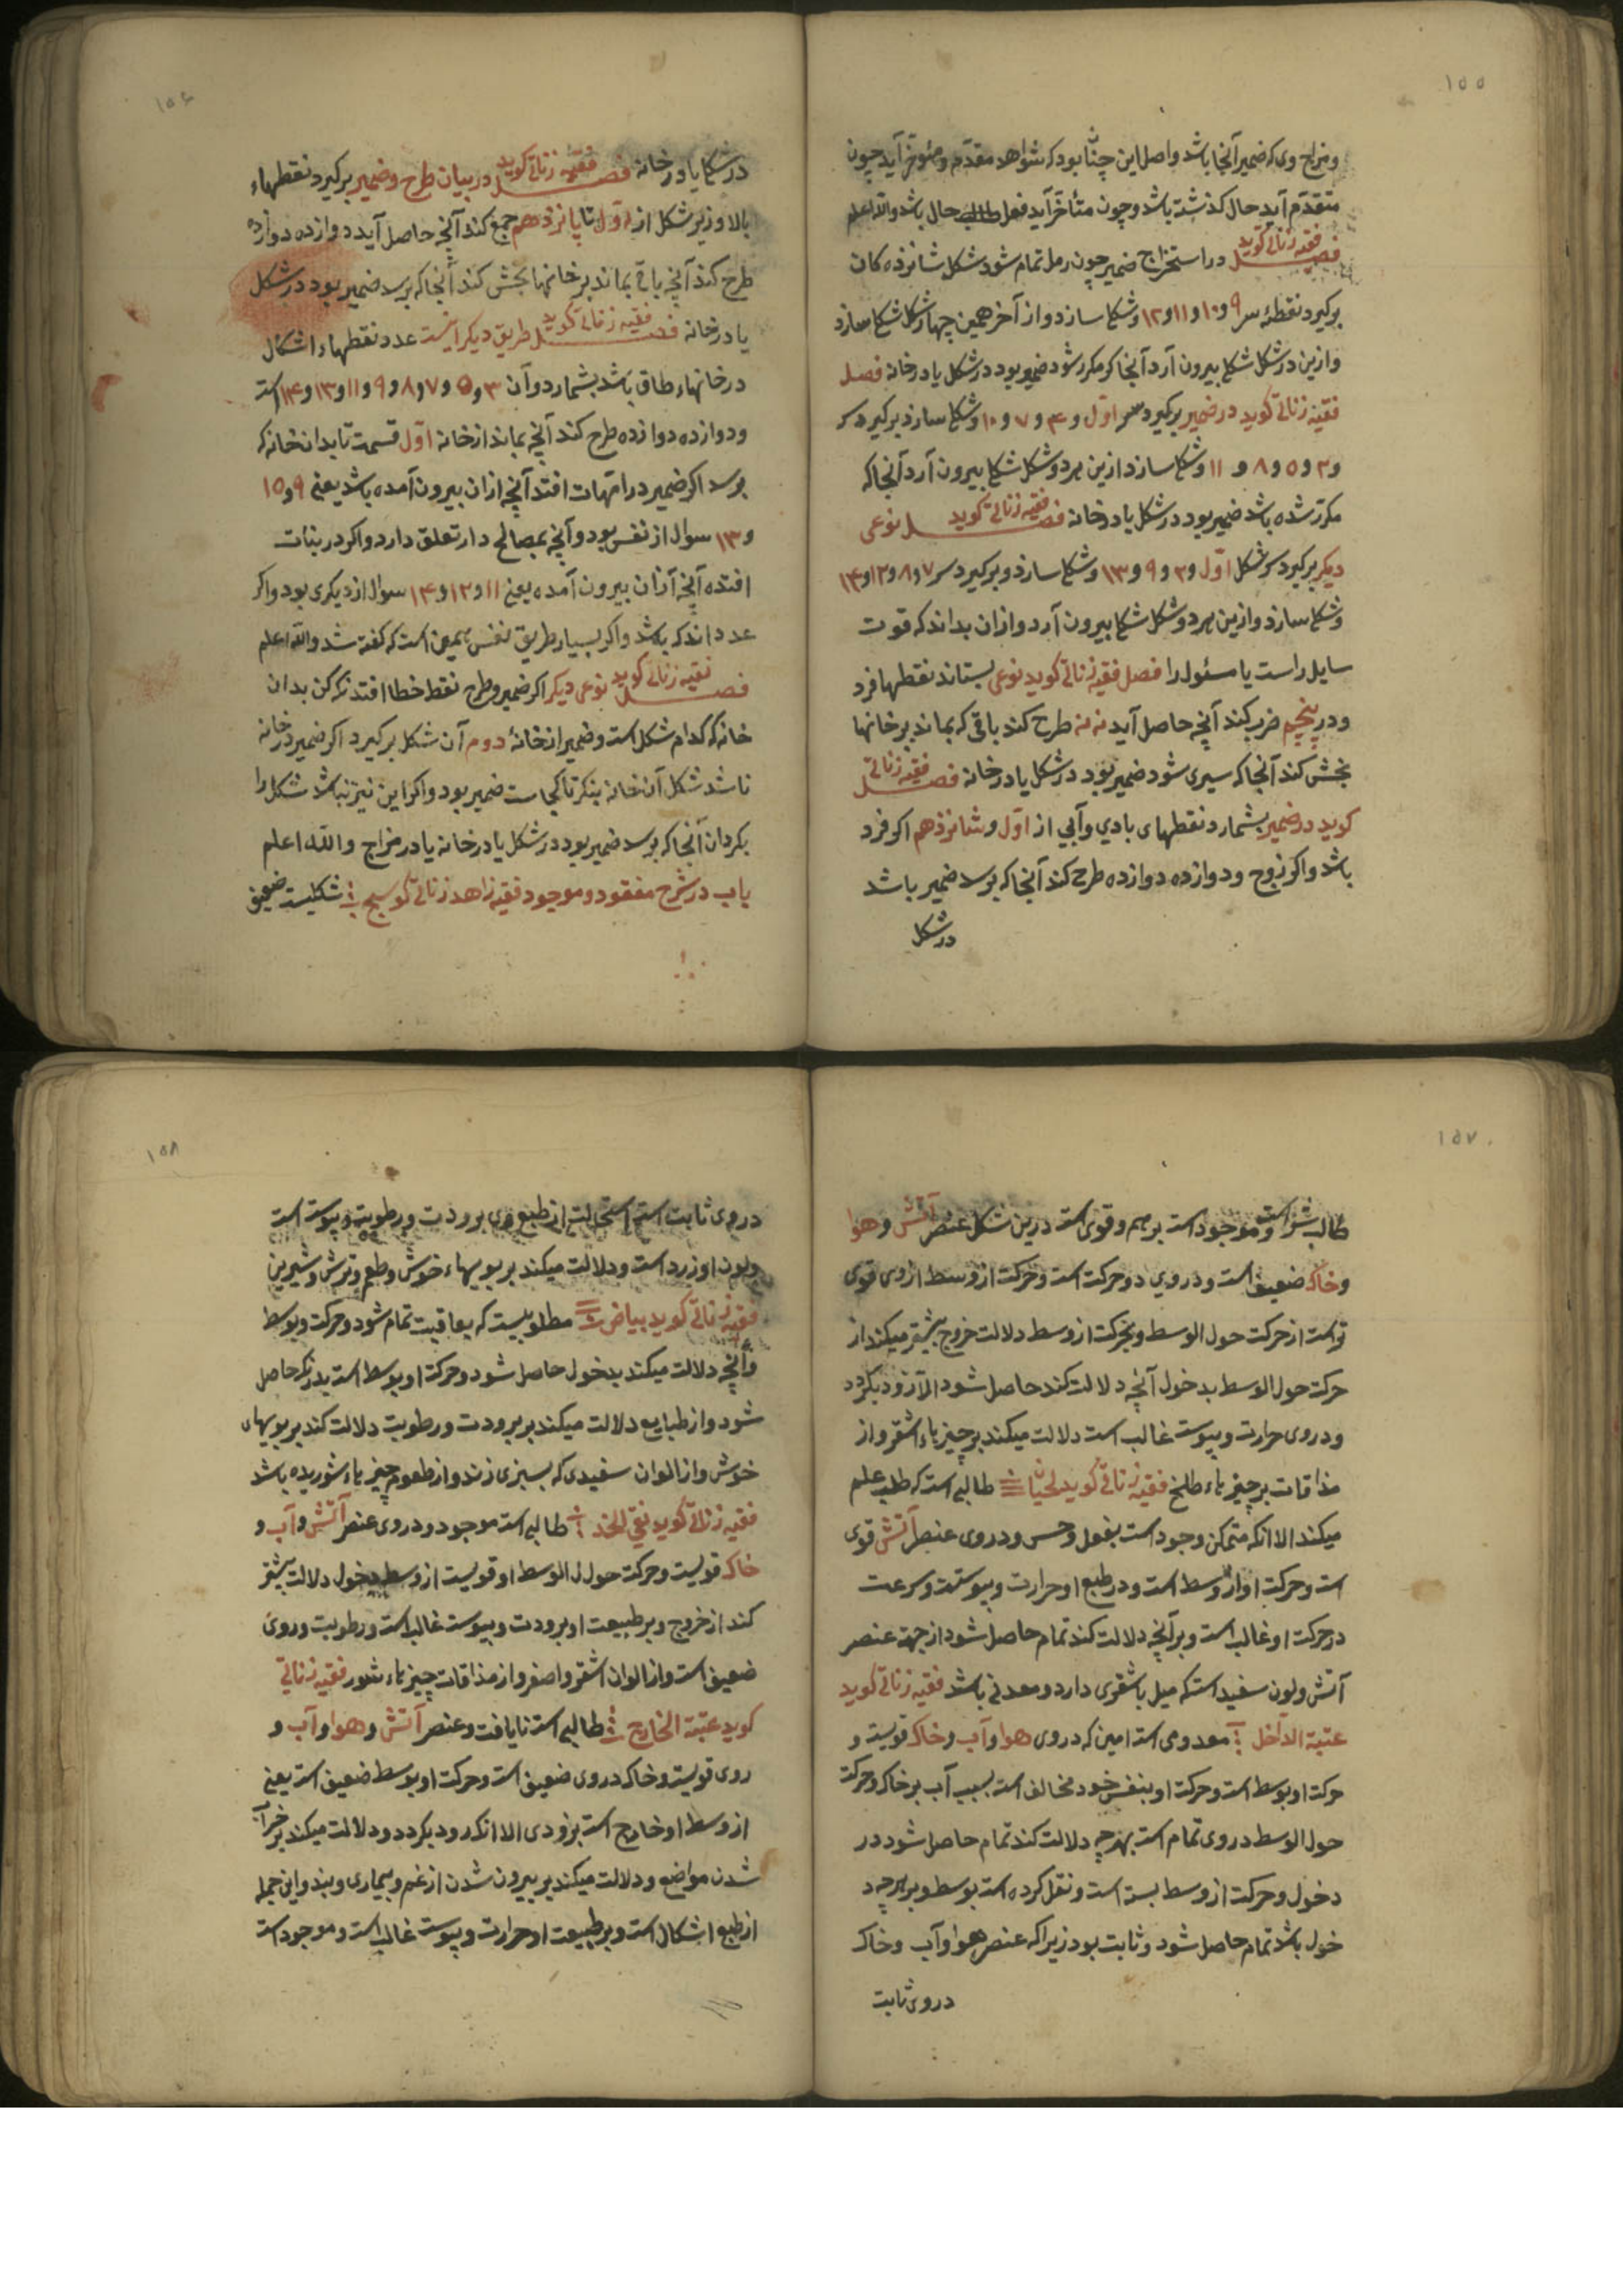 ۱۵۵
ومزاج وی که ضمیر آنجا باشد واصل این چنان بود که شواهد مقدم ومؤخر آید چون
متقدم آید حال کذشته باشد وچون متأخر آید فعل حال باشد والله اعلم
فصل فقیه زناتی کوید در استخراج ضمیر چون رمل تمام شود شکل شانزده کان
برکیرد نقطهٔ سر ۹ و ۱۰ و ۱۱ و ۱۲ وشکلی سازد واز آخر همین چهار شکل شکلی سازد
وازین دو شکل شکلی بیرون آرد آنجا که مکرر شود ضمیر بود در شکل یا در خانه فصل
فقیه زناتی کوید در ضمیر برکیرد سر اول و ۴ و ۷ و ۱۰ وشکلی سازد برکیرد سر
و ۲ و ۵ و ۸ و ۱۱ وشکلی سازد ازین هر دو شکل شکلی بیرون آرد آنجا که
مکرر شده باشد ضمیر بود در شکل یا در خانه فصل فقیه زناتی کوید نوعی
دیکر برکیرد سر شکل اول و ۲ و ۹ و ۱۳ وشکلی سازد وبرکیرد سر ۷ و ۸ و ۱۲ و ۱۴
وشکلی سازد وازین هر دو شکل شکلی بیرون آرد وازان بداند که قوت
سایل راست یا مسئول را فصل فقیه زناتی کوید نوعی بستاند نقطها فرد
ودر پنجم ضرب کند آنچه حاصل آید نه نه طرح کند باقی که بماند بر خانها
بخش کند آنجا که سپری شود ضمیر بود در شکل یا در خانه فصل فقیه زناتی
کوید در ضمیر بشمارد نقطهای بادی وآبی از اول وشانزدهم اکر فرد
باشد واکر زوج ودوازده دوازده طرح کند آنجا که برسد ضمیر باشد
در شکل
۱۵۶
در شکل یا در خانه فصل فقیه زناتی کوید در بیان طرح وضمیر برکیرد نقطهاء
بالا وزیر شکل از اول تا پانزدهم جمع کند آنچه حاصل آید دوازده دوازده
طرح کند آنچه باقی بماند بر خانها بخش کند آنجا که برسد ضمیر بود در شکل
یا در خانه فصل فقیه زناتی کوید طریق دیکر اینست عدد نقطهاء اشکال
در خانهاء طاق باشد بشمارد وآن ۳ و ۵ و ۷ و ۸ و ۹ و ۱۱ و ۱۳ و ۱۴ است
ودوازده دوازده طرح کند آنچه بماند از خانه اول قسمت تا بدان خانه که
برسد اکر ضمیر در امهات افتد آنچه ازان بیرون آمده باشد یعنی ۹ و ۱۵
و ۱۳ سوال از نفس بود وآنچه بمصالح دار تعلق دارد واکر در بنات
افتده آنچه ازان بیرون آمده یعنی ۱۱ و ۱۲ و ۱۴ سوال از دیکری بود واکر
عدد اندک باشد واکر بسیار طریق نفس همین است که کفته شد والله اعلم
فصل فقیه زناتی کوید نوعی دیکر اکر ضمیر وطرح نقط خطا افتد نکه کن بدان
خانه که کدام شکل است وضمیر از خانهٔ دوم آن شکل برکیرد اکر ضمیر در خانه
نباشد شکل آن خانه بنکر تا کجاست ضمیر بود واکر این نیز نباشد شکل را
بکردان آنجا که برسد ضمیر بود در شکل یا در خانه یا در مزاج والله اعلم
باب در شرح مفقود وموجود فقیه زاهد زناتی کوسج شکلیست ضعیف
۱۵۷
طالب شر است وموجود است بر مهم وقوی است درین شکل عنصر آتش وهوا
وخاک ضعیف است ودر وی دو حرکت است وحرکت از وسط از وی قوی
تر است از حرکت حول الوسط وبحرکت از وسط دلالت خروج بیشتر میکند از
حرکت حول الوسط بدخول آنچه دلالت کند حاصل شود الا زود بکردد
ودر وی حرارت ویبوست غالب است دلالت میکند بر چیزهاء اشقر واز
مذاقات بر چیزهاء طلخ فقیه زناتی کوید لحیان طالبی است که طلب علم
میکند الا انکه متمکن وجود است بفعل وحس ودر وی عنصر آتش قوی
است وحرکت او از وسط است ودر طبع او حرارت ویبوست وسرعت
در حرکت او غالب است وبر آنچه دلالت کند تمام حاصل شود از جهة عنصر
آتش ولون سفید است که میل باشقری دارد ومعدنی باشد فقیه زناتی کوید
عتبة الداخل معدومی است امین که در وی هوا وآب وخاک قویست و
حرکت او بوسط است وحرکت او بنفس خود مخالف است بسبب آب بر خاک وحرکت
حول الوسط در وی تمام است بهرچه دلالت کند تمام حاصل شود در
دخول وحرکت از وسط بسته است ونقل کرده است بوسط وبر هرچه د
خول باشد تمام حاصل شود وثابت بود زیرا که عنصر هوا وآب وخاک
در وی ثابت
۱۵۸
در وی ثابت است از طبع وی برودت ورطوبت ویبوست است
ولون او زرد است ودلالت میکند بر بویهاء خوش وطعم وترش وشیرین
فقیه زناتی کوید بیاض مطلوبیست که بعاقبت تمام شود وحرکت وبوسط
وآنچه دلالت میکند بدخول حاصل شود وحرکت او بوسط است بدرنک حاصل
شود واز طبایع دلالت میکند بر برودت ورطوبت دلالت کند بر بویهای
خوش واز الوان سفیدی که بسبزی زند واز طعوم چیزهاء شوریده باشد
فقیه زناتی کوید نقی الخد طالبی است موجود ودر وی عنصر آتش وآب و
خاک قویست وحرکت حول الوسط او قویست از وسط بدخول دلالت بیشتر
کند از خروج وبر طبیعت او برودت ویبوست غالب است ورطوبت در وی
ضعیف است واز الوان اشقر واصفر واز مذاقات چیزهاء شور فقیه زناتی
کوید عتبة الخارج طالبی است نایافت وعنصر آتش وهوا وآب و
روی قویست وخاک در وی ضعیف است وحرکت او بوسط ضعیف است یعنی
از وسط او خارج است بزودی الا انکه زود بکردد ودلالت میکند بر
شدن مواضع ودلالت میکند بر بیرون شدن از غم وبیماری وبند واین جمله
از طبع اشکال است وبر طبیعت او حرارت ویبوست غالب است وموجود است